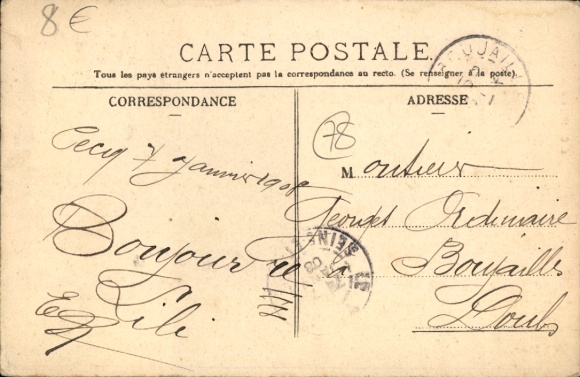 8 €
CARTE POSTALE.
Tous les pays étrangers n'acceptent pas la correspondance au recto. (Se renseigner à la poste).
CORRESPONDANCE
ADRESSE
78
7 Janvier 1908
Monsieur
Georges Ordinaire
à Boujailles
Doubs
Bonjour de
Lili